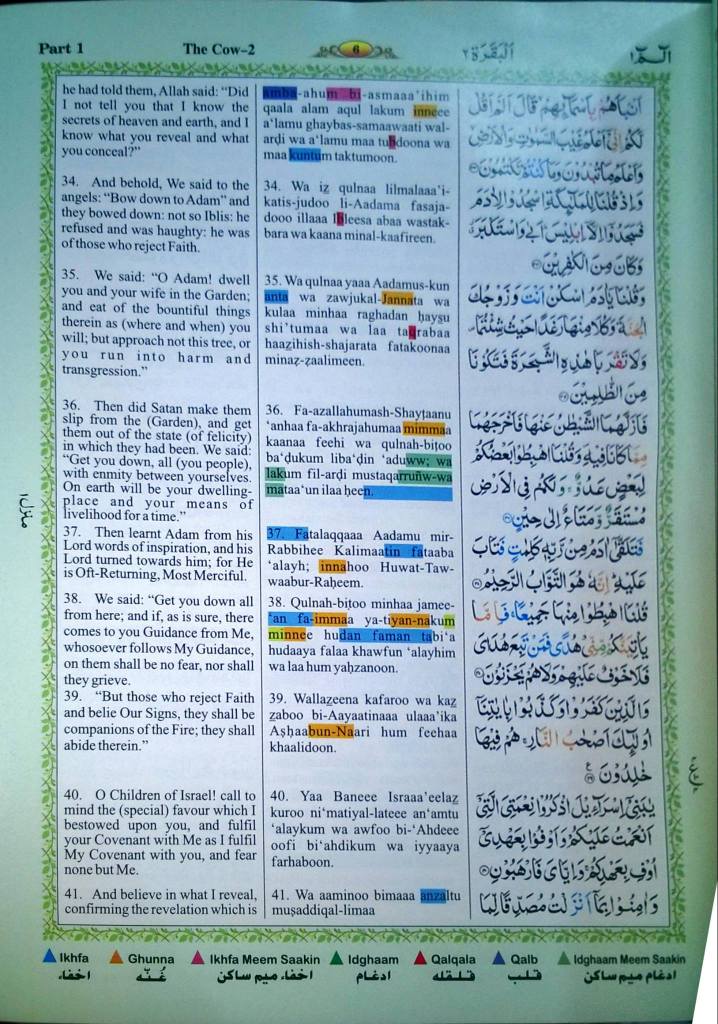 Part 1
The Cow-2
6
اَلْبَقَرَة ٢
الٓمّٓ ١
he had told them, Allah said: “Did
I not tell you that I know the
secrets of heaven and earth, and I
know what you reveal and what
you conceal?”
34. And behold, We said to the
angels: “Bow down to Adam” and
they bowed down: not so Iblis: he
refused and was haughty: he was
of those who reject Faith.
35. We said: “O Adam! dwell
you and your wife in the Garden;
and eat of the bountiful things
therein as (where and when) you
will; but approach not this tree, or
you run into harm and
transgression.”
36. Then did Satan make them
slip from the (Garden), and get
them out of the state (of felicity)
in which they had been. We said:
“Get you down, all (you people),
with enmity between yourselves.
On earth will be your dwelling-
place and your means of
livelihood for a time.”
37. Then learnt Adam from his
Lord words of inspiration, and his
Lord turned towards him; for He
is Oft-Returning, Most Merciful.
38. We said: “Get you down all
from here; and if, as is sure, there
comes to you Guidance from Me,
whosoever follows My Guidance,
on them shall be no fear, nor shall
they grieve.
39. “But those who reject Faith
and belie Our Signs, they shall be
companions of the Fire; they shall
abide therein.”
40. O Children of Israel! call to
mind the (special) favour which I
bestowed upon you, and fulfil
your Covenant with Me as I fulfil
My Covenant with you, and fear
none but Me.
41. And believe in what I reveal,
confirming the revelation which is
amba-ahum bi-asmaaa’ihim
qaala alam aqul lakum inneee
a‘lamu ghaybas-samaawaati wal-
arḍi wa a‘lamu maa tubdoona wa
maa kuntum taktumoon.
34. Wa iẓ qulnaa lilmalaaa’i-
katis-judoo li-Aadama fasaja-
dooo illaaa Ibleesa abaa wastak-
bara wa kaana minal-kaafireen.
35. Wa qulnaa yaaa Aadamus-kun
anta wa zawjukal-Jannata wa
kulaa minhaa raghadan ḥayṣu
shi’tumaa wa laa taqrabaa
haaẓihish-shajarata fatakoonaa
minaẓ-ẓaalimeen.
36. Fa-azallahumash-Shayṭaanu
‘anhaa fa-akhrajahumaa mimmaa
kaanaa feehi wa qulnah-biṭoo
ba‘ḍukum liba‘ḍin ‘aduww; wa
lakum fil-arḍi mustaqarruñw-wa
mataa‘un ilaa ḥeen.
37. Fatalaqqaaa Aadamu mir-
Rabbihee Kalimaatin fataaba
‘alayh; innahoo Huwat-Taw-
waabur-Raḥeem.
38. Qulnah-biṭoo minhaa jamee-
‘an fa-immaa ya-tiyan-nakum
minnee hudan faman tabi‘a
hudaaya falaa khawfun ‘alayhim
wa laa hum yaḥzanoon.
39. Wallaẓeena kafaroo wa kaẓ
ẓaboo bi-Aayaatinaaa ulaaa’ika
Aṣḥaabun-Naari hum feehaa
khaalidoon.
40. Yaa Baneee Israaa’eelaẓ
kuroo ni‘matiyal-lateee an‘amtu
‘alaykum wa awfoo bi-‘Ahdeee
oofi bi‘ahdikum wa iyyaaya
farhaboon.
41. Wa aaminoo bimaaa anzaltu
muṣaddiqal-limaa
اَنْۢبَاَهُمْ بِاَسْمَآىِٕهِمْ قَالَ اَلَمْ اَقُلْ
لَّكُمْ اِنِّيْٓ اَعْلَمُ غَيْبَ السَّمٰوٰتِ وَالْاَرْضِ
وَاَعْلَمُ مَا تُبْدُوْنَ وَمَا كُنْتُمْ تَكْتُمُوْنَ
وَاِذْ قُلْنَا لِلْمَلٰٓىِٕكَةِ اسْجُدُوْا لِاٰدَمَ
فَسَجَدُوْٓا اِلَّآ اِبْلِيْسَ اَبٰى وَاسْتَكْبَرَ
وَكَانَ مِنَ الْكٰفِرِيْنَ
وَقُلْنَا يٰٓاٰدَمُ اسْكُنْ اَنْتَ وَزَوْجُكَ
الْجَنَّةَ وَكُلَا مِنْهَا رَغَدًا حَيْثُ شِئْتُمَا
وَلَا تَقْرَبَا هٰذِهِ الشَّجَرَةَ فَتَكُوْنَا
مِنَ الظّٰلِمِيْنَ
فَاَزَلَّهُمَا الشَّيْطٰنُ عَنْهَا فَاَخْرَجَهُمَا
مِمَّا كَانَا فِيْهِ وَقُلْنَا اهْبِطُوْا بَعْضُكُمْ
لِبَعْضٍ عَدُوٌّ وَلَكُمْ فِي الْاَرْضِ
مُسْتَقَرٌّ وَّمَتَاعٌ اِلٰى حِيْنٍ
فَتَلَقّٰٓى اٰدَمُ مِنْ رَّبِّهٖ كَلِمٰتٍ فَتَابَ
عَلَيْهِ اِنَّهٗ هُوَ التَّوَّابُ الرَّحِيْمُ
قُلْنَا اهْبِطُوْا مِنْهَا جَمِيْعًا فَاِمَّا
يَاْتِيَنَّكُمْ مِّنِّيْ هُدًى فَمَنْ تَبِعَ هُدَايَ
فَلَا خَوْفٌ عَلَيْهِمْ وَلَا هُمْ يَحْزَنُوْنَ
وَالَّذِيْنَ كَفَرُوْا وَكَذَّبُوْا بِاٰيٰتِنَآ
اُولٰٓىِٕكَ اَصْحٰبُ النَّارِ هُمْ فِيْهَا
خٰلِدُوْنَ
يٰبَنِيْٓ اِسْرَآءِيْلَ اذْكُرُوْا نِعْمَتِيَ الَّتِيْٓ
اَنْعَمْتُ عَلَيْكُمْ وَاَوْفُوْا بِعَهْدِيْٓ
اُوْفِ بِعَهْدِكُمْ وَاِيَّايَ فَارْهَبُوْنِ
وَاٰمِنُوْا بِمَآ اَنْزَلْتُ مُصَدِّقًا لِّمَا
منزل ١
Ikhfa
Ghunna
Ikhfa Meem Saakin
Idghaam
Qalqala
Qalb
Idghaam Meem Saakin
اخفاء
غُنّه
اخفاء میم ساکن
ادغام
قلقله
قلب
ادغام میم ساکن